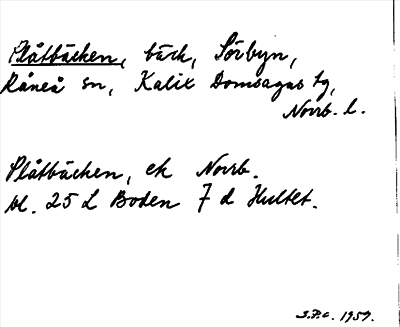 Plåtbäcken, bäck, Sörbyn,
Råneå sn, Kalix Domsagas tg,
Norrb. l.
Plåtbäcken, ek Norrb.
bl. 25 L Boden 7 d Hultet.
S.P.C. 1959.